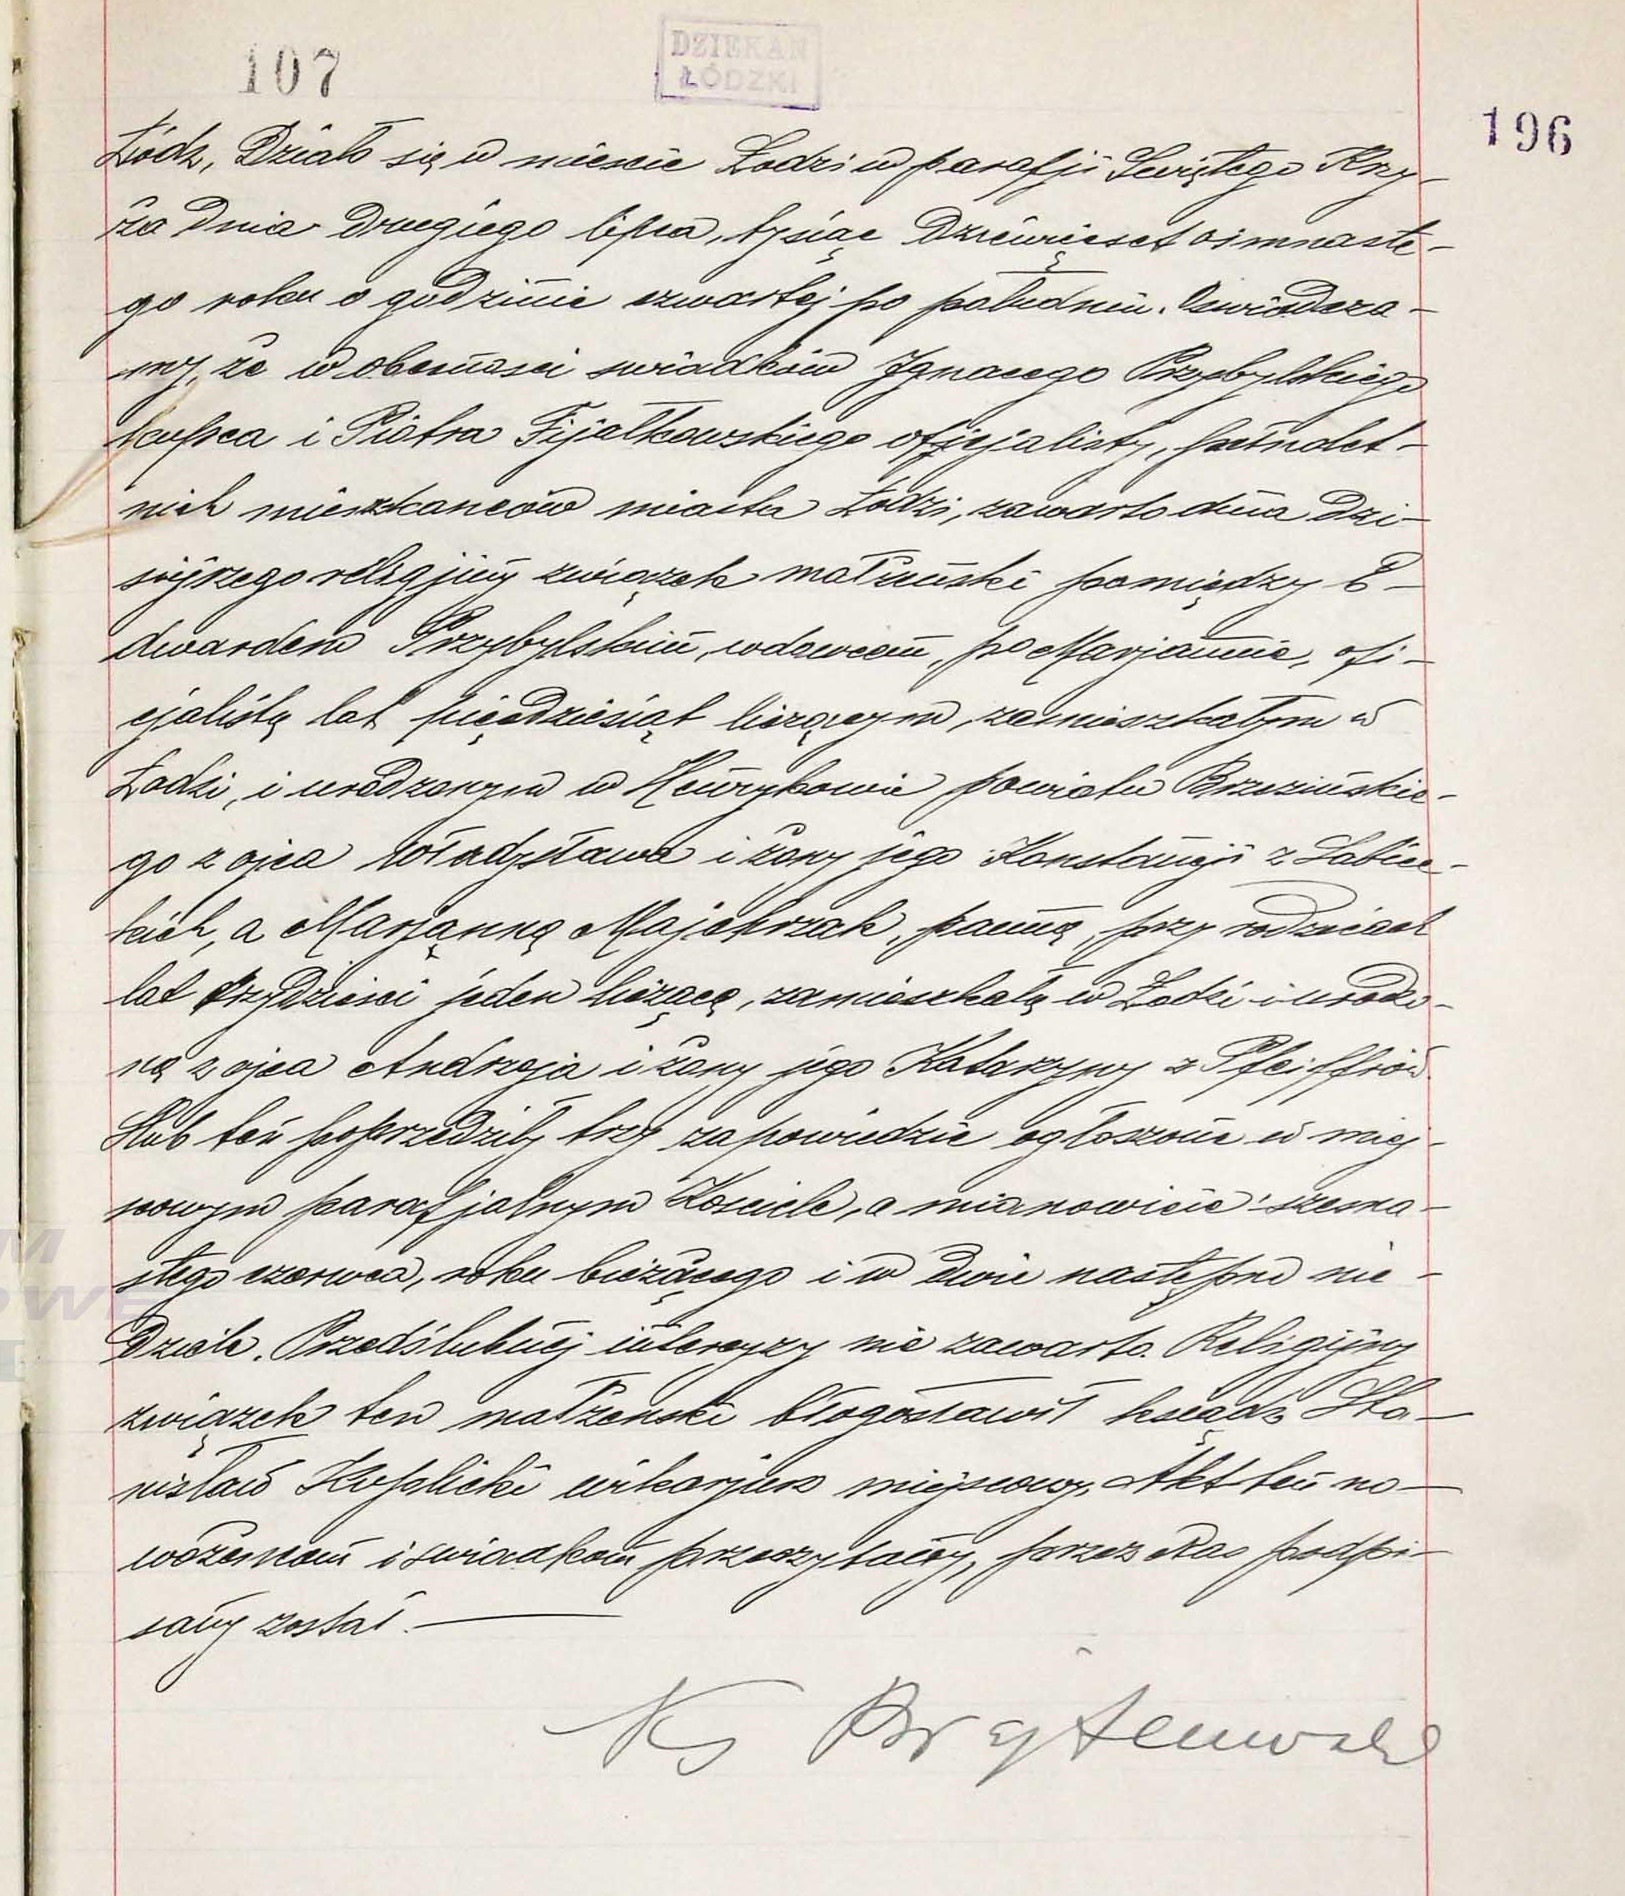 107
DZIEKAN
ŁÓDZKI
196
Łódz, Działo się w mieście Łodzi w parafji Świętego Krzy-
ża dnia drugiego lipca, tysiąc dziewięset osmnaste-
go roku o godzinie czwartej po południu. Oświadcza-
my, że w obecności świadków Ignacego Przybylskiego
kupca i Piotra Fijałkowskiego oficjalisty, pełnolet-
nich mieszkańców miasta Łodzi, zawarto dnia dzi-
siejszego religijny związek małżeński pomiędzy E-
dwardem Przybylskim, wdowcem, po Marjannie, ofi-
cjalistą lat pięćdziesiąt liczącym, zamieszkałym w
Łodzi, i urodzonym w Henrykowie powiatu Brzezińskie-
go z ojca Władysława i żony jego Konstancji z
kich, a Marjanną Majchrzak, panną, przy rodzicach
lat trzydzieści jeden liczącą, zamieszkałą w Łodzi i urodzo-
ną z ojca Andrzeja i żony jego Katarzyny z Pfeiffrów.
Ślub ten poprzedziły trzy zapowiedzie ogłoszone w miej-
scowym parafjalnym Kościele, a mianowicie: szesna-
stego czerwca, roku bieżącego i w dwie następne nie-
dziele. Przedślubnej intercyzy nie zawarto. Religijny
związek ten małżeński błogosławił ksiądz Sta-
nisław wikarjusz miejscowy. Akt ten no-
wożeńcom i świadkom przeczytany, przez Nas podpi-
sany został.
Ks